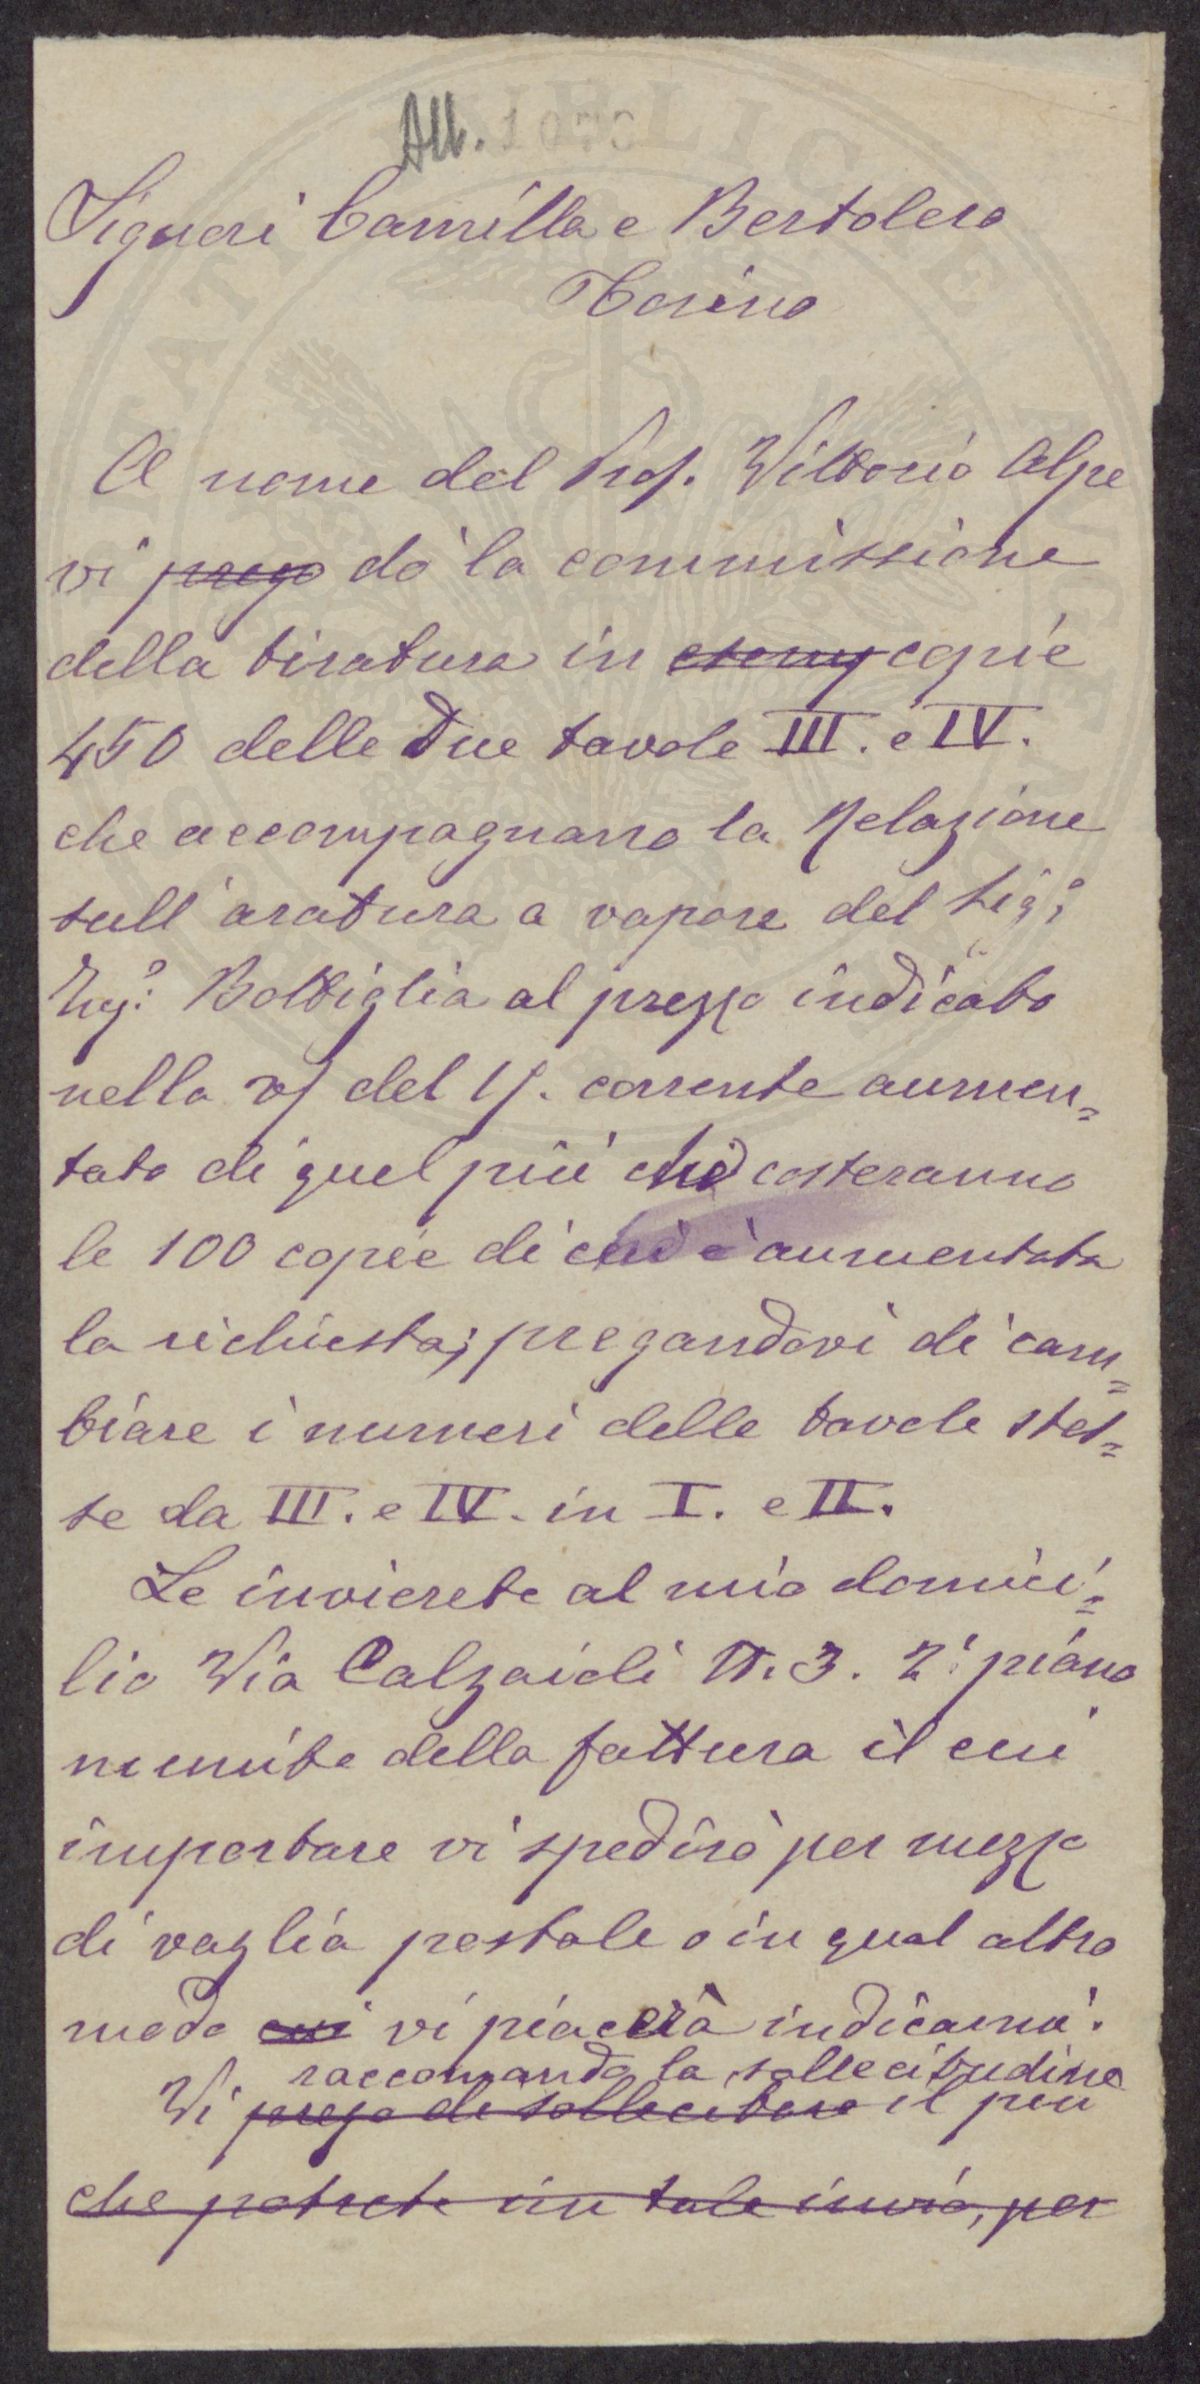 All. 1070
Signori Camilla e Bertolero
Torino
A nome del Prof. Vittorio Alpe
vi prego do la commissione
della tiratura in esemp copie
450 delle due tavole III. e IV.
che accompagnano la Relazione
sull'aratura a vapore del Sig.
Ing. Bottiglia al prezzo indicato
nella vs del 15. corrente aumen=
tato di quel più che costeranno
le 100 copie di cui è aumentata
la richiesta; pregandovi di cam=
biare i numeri delle tavole stes=
se da III. e IV. in I. e II.
Le invierete al mio domici=
lio Via Calzaioli N. 3. 2° piano
munite della fattura il cui
importare vi spedirò per mezzo
di vaglia postale o in qual altro
modo cui vi piacerà indicarmi.
raccomando la sollecitudine
Vi prego di sollecitare il più
che potrete un tale invio, per